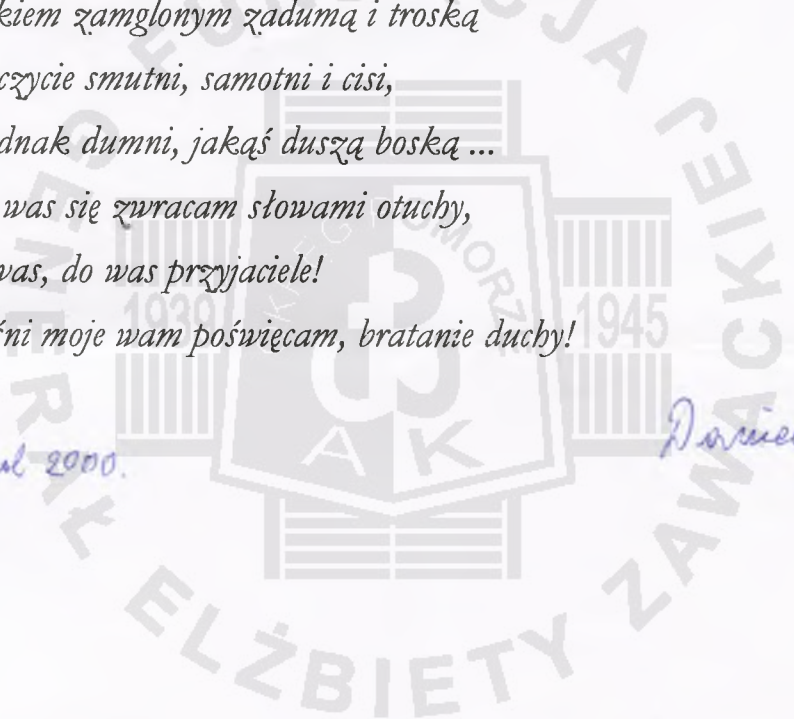 kiem zamglonym zadumą i troską
czycie smutni, samotni i cisi,
dnak dumni, jakąś duszą boską ...
was się zwracam słowami otuchy,
was, do was przyjaciele!
śni moje wam poświęcam, bratanie duchy!
2000.
FUNDACJA
GENERAŁ ELŻBIETY ZAWACKIEJ
1939
1945
AK